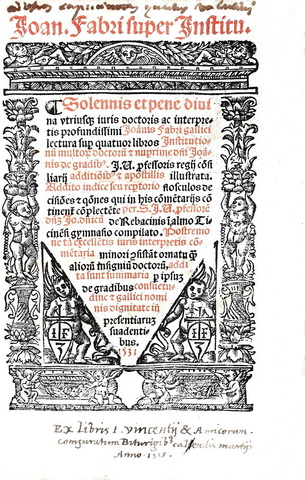 Joan. Fabri super Institu.
Solennis et pene divi
na utriusq; iuris doctoris ac interpre
tis profundissimi Joānis Fabri gallici
lectura sup quatuor libros Institutio
doctorū
tis de gradibꝰ. J. U. pfessoris regij cōsi
liarij additiōibꝰ & apostillis illustrata.
Addito indice seu reptorio flosculos de
cisōes & qōnes qui in his cōmētarijs cō
tinent cōplectēte per. S. J. U. pfessorē
de Rebacinis almo Ti
cinēsi gymnasio compilato. Postremo
iuris interpretis cō
mētaria minori
aliorū insigniū doctorū, addi
ta sunt summaria
de gradibus consuetu
dine & gallici nomi
nis dignitate in
presentiarum
suadenti
bus.
1531
I F
I F
Ex libris I. vincentij & Amicorum.
comparatum Biturigibꝰ calendis martij
Anno